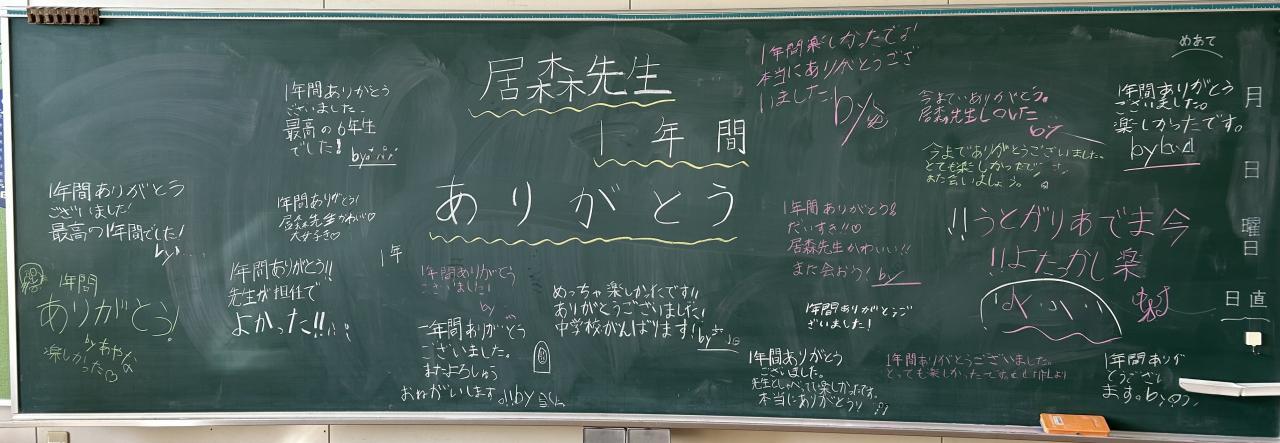 居森先生
1年間
ありがとう
1年間ありがとう
ございました
最高の6年生
でした!
by
1年間ありがとう
ございました!
最高の1年間でした!
by
1年間ありがとう!
居森先生かわいい♡
大好き♡
1年
1年間
ありがとう!
by あやな
楽しかった
1年間ありがとう!!
先生が担任で
よかった!!
1年間ありがとう
ございました!
by
一年間ありがとう
ございました。
またよろしゅう
おねがいします。!!by
めっちゃ楽しかったです!!
ありがとうございました!
中学校がんばります!by
1年間楽しかったです
本当にありがとうござ
いました!
by
今までありがとう。
居森先生
by
今までありがとうございました。
とても楽しかったです
また会いましょう。
1年間ありがとう!
だいすき!!♡
居森先生かわいい!!
また会おう! by
1年間ありがとうご
ざいました!
1年間ありがとう
ございました。
先生としゃべってて楽しかったです。
本当にありがとう!
1年間ありがとうございました。
とっても楽しかったです。
!!うとがりあでま今
!!よたっかし楽
1年間ありが
とうござい
ます。by
めあて
1年間ありがとう
ございました。
楽しかったです。
by
月
日
曜日
日直